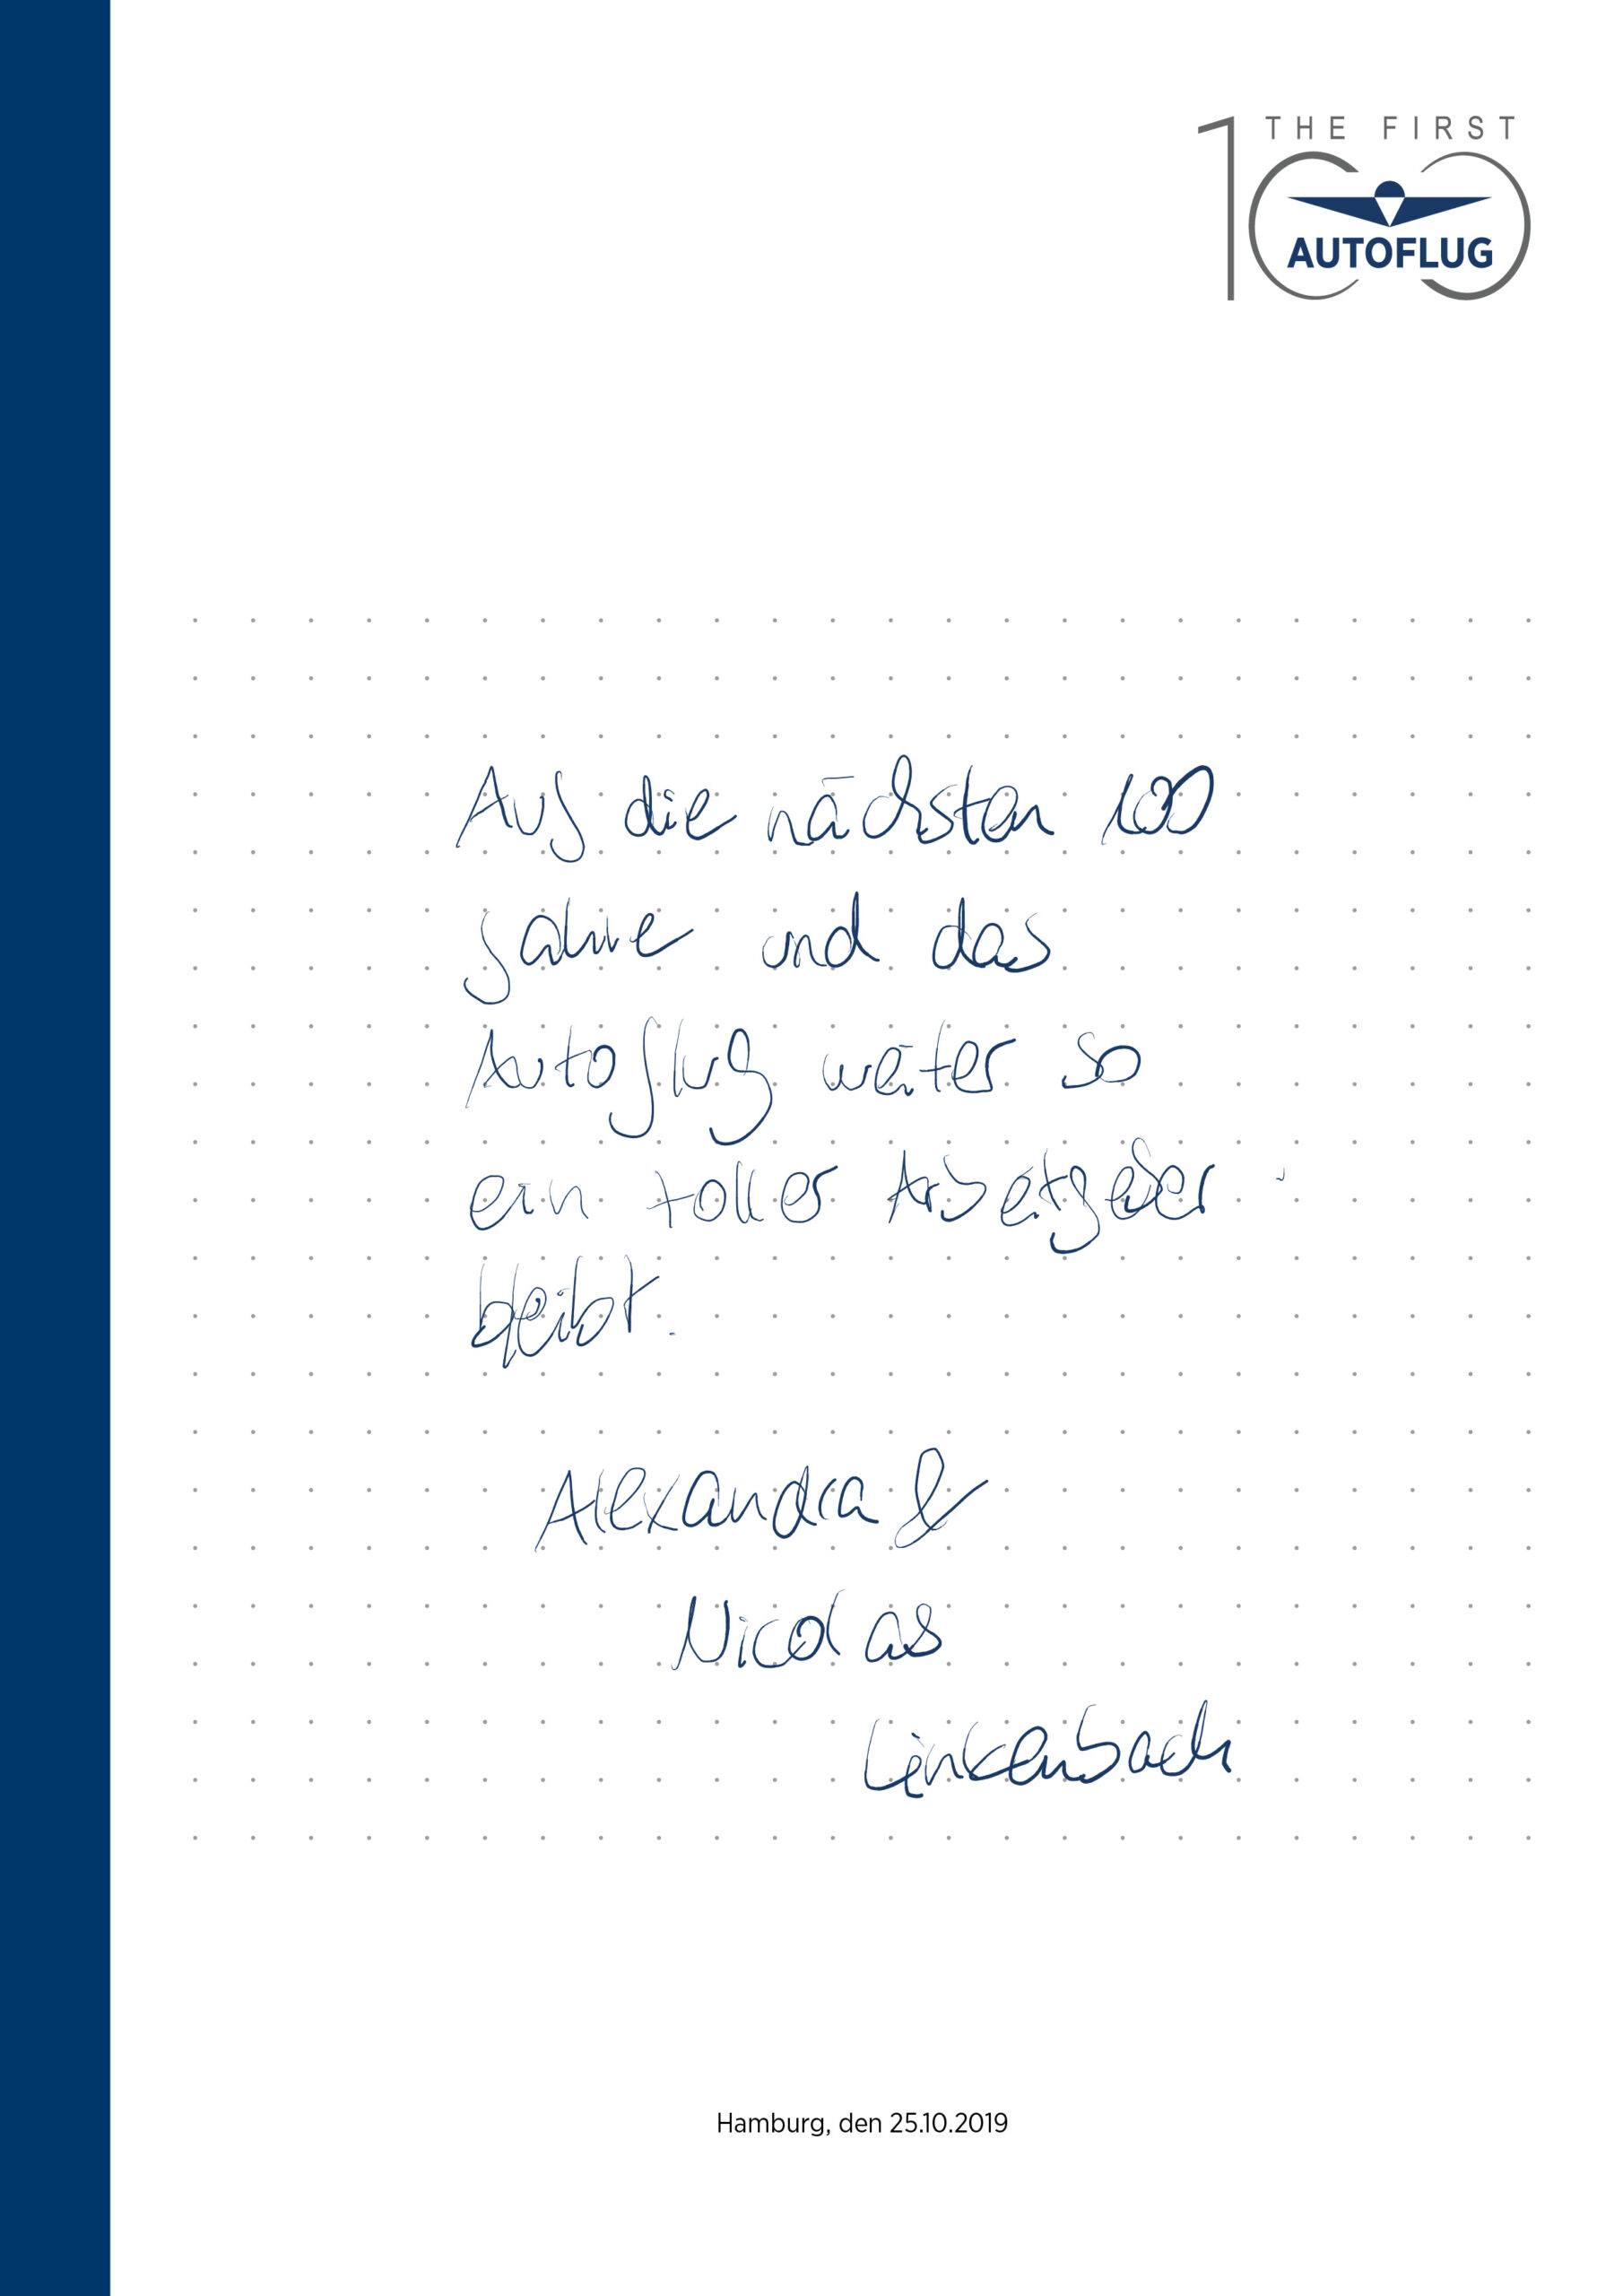 THE FIRST
100
AUTOFLUG
Auf die nächsten 100
Jahre und das
Autoflug weiter so
ein toller Arbeitgeber
bleibt.
Alexandra &
Nicolas
Linkenbach
Hamburg, den 25.10.2019